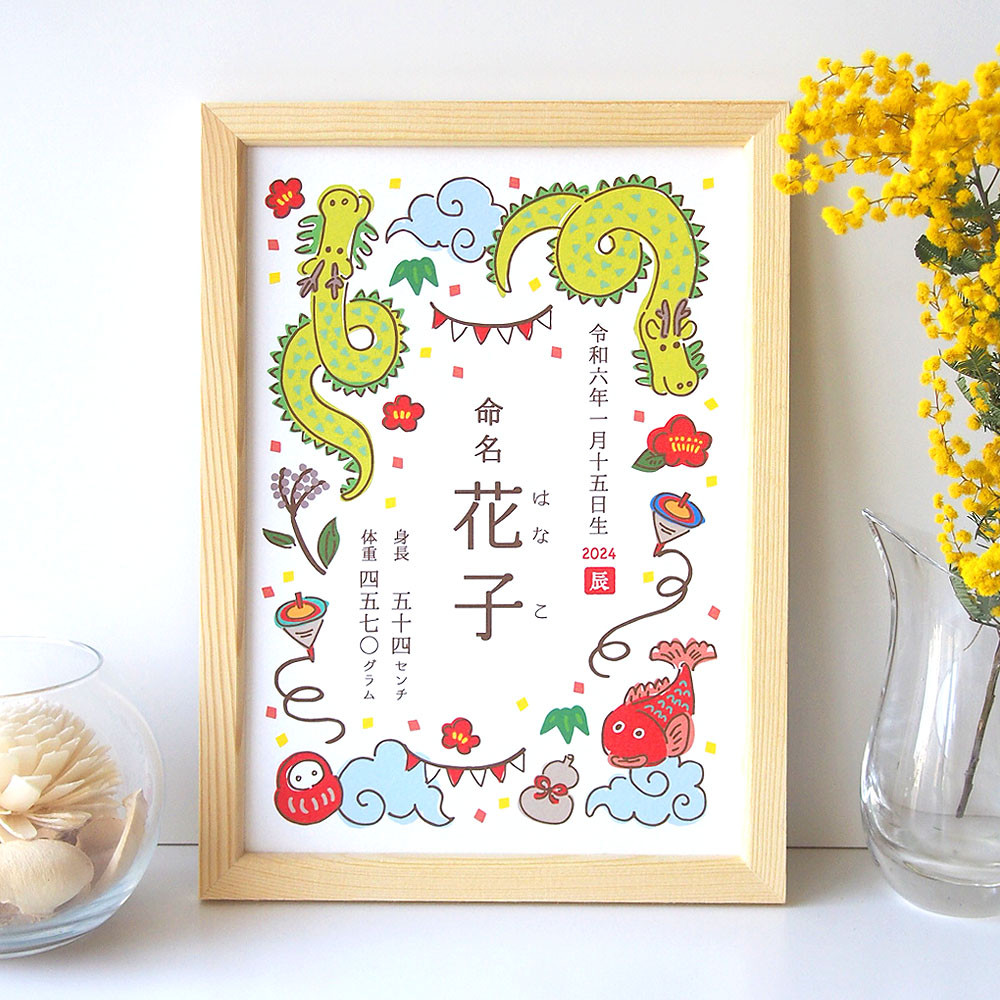 令和六年一月十五日生
2024
辰
命名
花子
はなこ
身長 五十四センチ
体重 四五七〇グラム